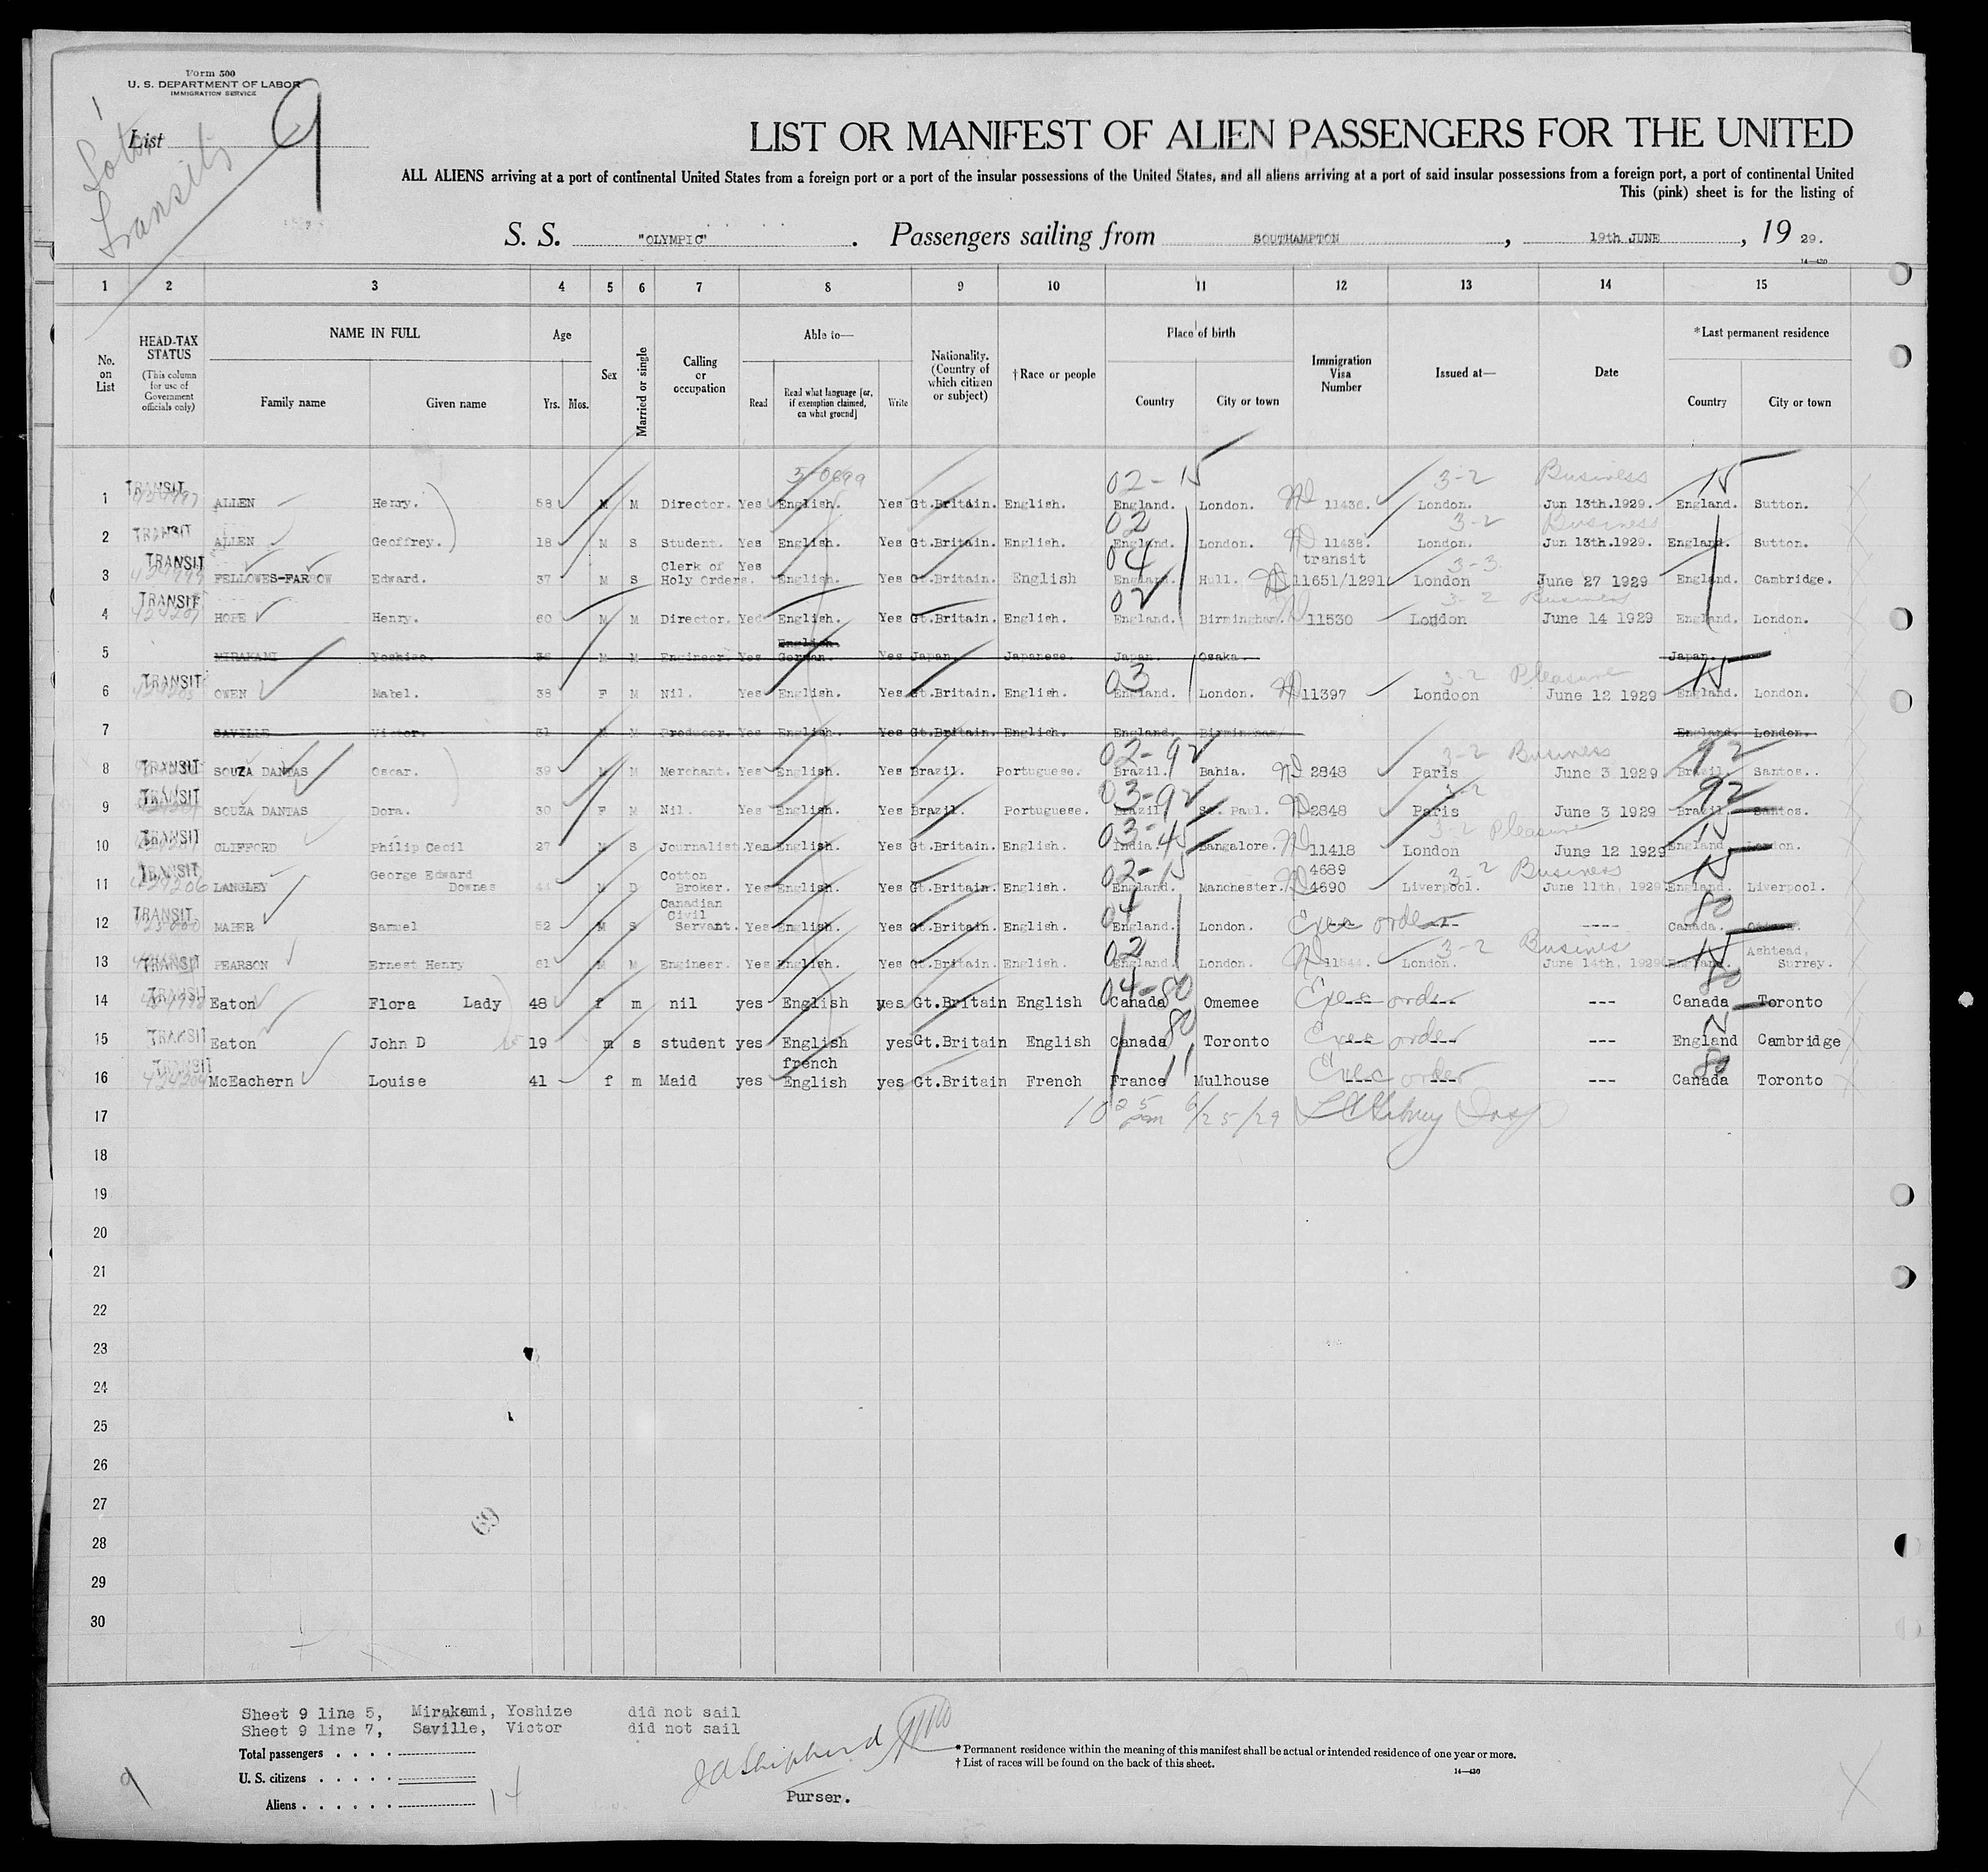 Form 500
U. S. DEPARTMENT OF LABOR
IMMIGRATION SERVICE
List 9
So'ton
Transits
LIST OR MANIFEST OF ALIEN PASSENGERS FOR THE UNITED
ALL ALIENS arriving at a port of continental United States from a foreign port or a port of the insular possessions of the United States, and all aliens arriving at a port of said insular possessions from a foreign port, a port of continental United
This (pink) sheet is for the listing of
S. S. "OLYMPIC". Passengers sailing from SOUTHAMPTON, 19th JUNE, 19 29.
14—430
1 2 3 4 5 6 7 8 9 10 11 12 13 14 15
No. on List
HEAD-TAX STATUS (This column for use of Government officials only)
NAME IN FULL
Family name Given name
Age
Yrs. Mos.
Sex
Married or single
Calling or occupation
Able to—
Read Read what language [or, if exemption claimed, on what ground] Write
Nationality. (Country of which citizen or subject)
† Race or people
Place of birth
Country City or town
Immigration Visa Number
Issued at—
Date
* Last permanent residence
Country City or town
5-0699 02-15 3-2 Business 15
1 TRANSIT ALLEN Henry. 58 M M Director. Yes English. Yes Gt.Britain. English. England. London. 11436. London. Jun 13th.1929. England. Sutton.
02 3-2 Business
2 TRANSIT ALLEN Geoffrey. 18 M S Student. Yes English. Yes Gt.Britain. English. England. London. 11438. London. Jun 13th.1929. England. Sutton.
04 transit 3-3
3 TRANSIT FELLOWES-FARROW Edward. 37 M S Clerk of Holy Orders. Yes English. Yes Gt.Britain. English England. Hull. 11651/1291 London June 27 1929 England. Cambridge.
02 3-2 Business
4 TRANSIT HOPE Henry. 60 M M Director. Yes English. Yes Gt.Britain. English. England. Birmingham. 11530 London June 14 1929 England. London.
English
5 MIRAKAMI Yoshize. 36 M M Engineer. Yes German. Yes Japan. Japanese. Japan. Osaka. Japan.
03 3-2 Pleasure 15
6 TRANSIT OWEN Mabel. 38 F M Nil. Yes English. Yes Gt.Britain. English. England. London. 11397 Londoon June 12 1929 England. London.
7 SAVILLE Victor. 31 M M Producer. Yes English. Yes Gt.Britain. English. England. Birmingham England. London.
02-92 3-2 Business 92
8 TRANSIT SOUZA DANTAS Oscar. 39 M M Merchant. Yes English. Yes Brazil. Portuguese. Brazil. Bahia. 2848 Paris June 3 1929 Brazil. Santos..
03-92 3-2 92
9 TRANSIT SOUZA DANTAS Dora. 30 F M Nil. Yes English. Yes Brazil. Portuguese. Brazil. Paul. 2848 Paris June 3 1929 Brazil. Santos.
03-45 3-2 Pleasure 15
10 TRANSIT CLIFFORD Philip Cecil 27 M S Journalist. Yes English. Yes Gt.Britain. English. India. Bangalore. 11418 London June 12 1929 England London.
02-15 3-2 Business 15
11 TRANSIT 424206 LANGLEY George Edward Downes 44 M D Cotton Broker. Yes English. Yes Gt.Britain. English. England. Manchester. 4689 4690 Liverpool. June 11th, 1929 England. Liverpool.
04 80
12 TRANSIT MAHER Samuel 52 M S Canadian Civil Servant. Yes English. Yes Gt.Britain. English. England. London. Exec order ---- Canada. Ottawa.
02 3-2 Business 15
13 TRANSIT PEARSON Ernest Henry 61 M M Engineer. Yes English. Yes Gt.Britain. English. England. London. 11544. London. June 14th, 1929 England. Ashtead, Surrey.
04-80 80
14 TRANSIT Eaton Flora Lady 48 f m nil yes English yes Gt.Britain English Canada Omemee Exec order --- Canada Toronto
80
15 TRANSIT Eaton John D 19 m s student yes English yes Gt.Britain English Canada Toronto Exec order --- England Cambridge
french 11 80
16 TRANSIT 424204 McEachern Louise 41 f m Maid yes English yes Gt.Britain French France Mulhouse Exec order --- Canada Toronto
17 10 25 pm 6/25/29 Insp
18
19
20
21
22
23
24
25
26
27
28
29
30
(69)
Sheet 9 line 5, Mirakami, Yoshize did not sail
Sheet 9 line 7, Saville, Victor did not sail
Total passengers
U. S. citizens
Aliens 14
9
J A Shepherd
Purser.
* Permanent residence within the meaning of this manifest shall be actual or intended residence of one year or more.
† List of races will be found on the back of this sheet.
14—430
X